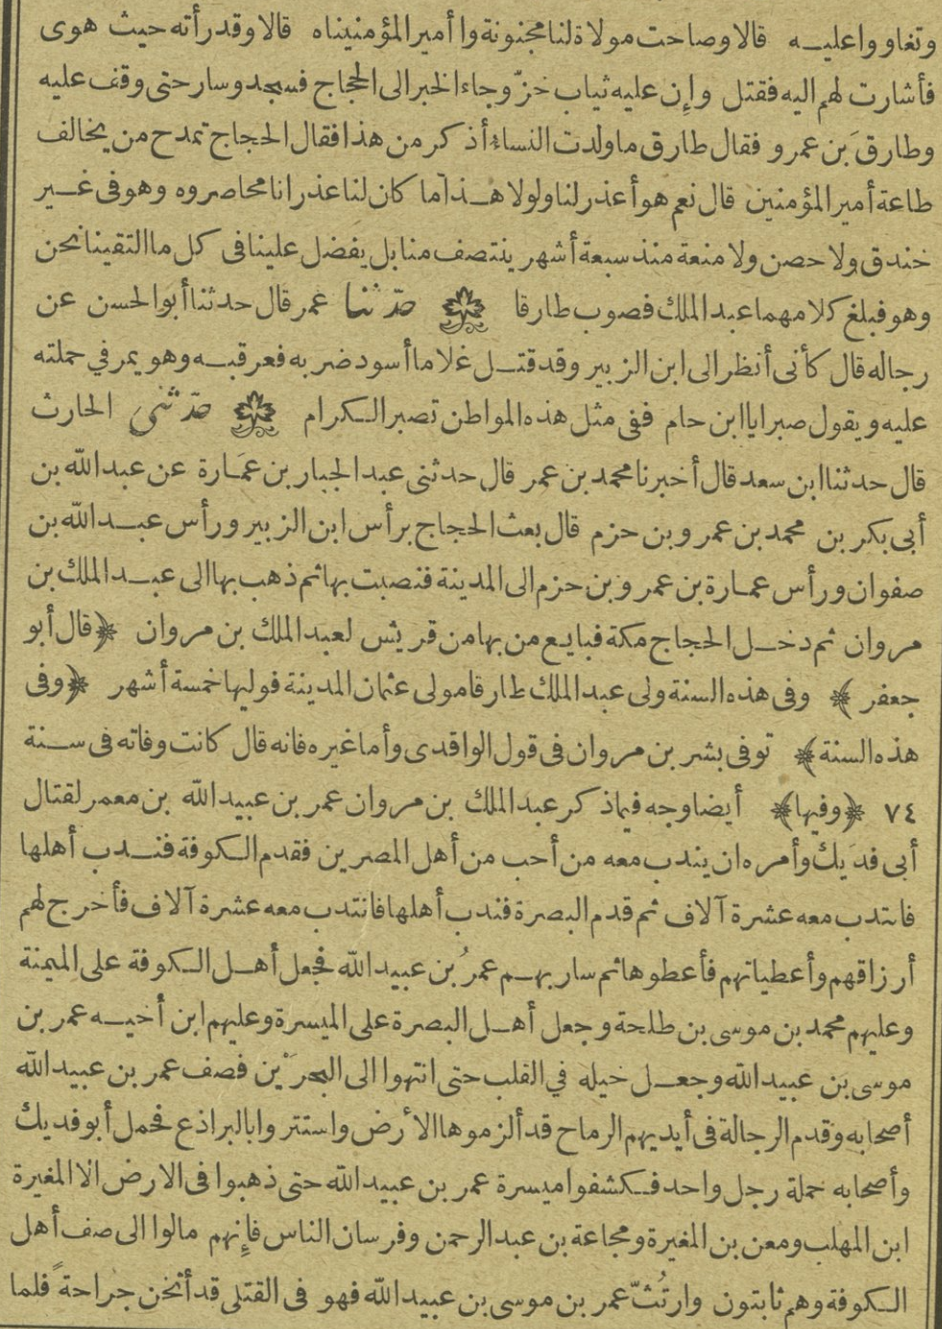 وتغاووا عليه قالا وصاحت مولاة لنا مجنونة وا أمير المؤمنيناه قالا وقد رأته حيث هوى
فأشارت لهم اليه فقتل وإن عليه ثياب خزّ وجاء الخبر الى الحجاج فسجد وسار حتى وقف عليه
وطارق بن عمرو فقال طارق ما ولدت النساء أذكر من هذا فقال الحجاج تمدح من يخالف
طاعة أمير المؤمنين قال نعم هو أعذر لنا ولولا هذا ما كان لنا عذر انا محاصروه وهو في غير
خندق ولا حصن ولا منعة منذ سبعة أشهر ينتصف منا بل يفضل علينا في كل ما التقينا نحن
وهو فبلغ كلامهما عبد الملك فصوب طارقا حدّثنا عمر قال حدثنا أبو الحسن عن
رجاله قال كأنى أنظر الى ابن الزبير وقد قتل غلاما أسود ضربه فعرقبه وهو يمر في حملته
عليه ويقول صبرا يا ابن حام ففى مثل هذه المواطن تصبر الكرام حدّثني الحارث
قال حدثنا ابن سعد قال أخبرنا محمد بن عمر قال حدثنى عبد الجبار بن عمَارة عن عبد الله بن
أبى بكر بن محمد بن عمرو بن حزم قال بعث الحجاج برأس ابن الزبير ورأس عبد الله بن
صفوان ورأس عمارة بن عمرو بن حزم الى المدينة فنصبت بها ثم ذهب بها الى عبد الملك بن
مروان ثم دخل الحجاج مكة فبايع من بها من قريش لعبد الملك بن مروان ﴿قال أبو
جعفر﴾ وفى هذه السنة ولى عبد الملك طارقا مولى عثمان المدينة فوليها خمسة أشهر ﴿وفى
هذه السنة﴾ توفى بشر بن مروان فى قول الواقدى وأما غيره فانه قال كانت وفاته فى سنة
٧٤ ﴿وفيها﴾ أيضا وجه فيما ذكر عبد الملك بن مروان عمر بن عبيد الله بن معمر لقتال
أبى فدَيك وأمره ان يندب معه من أحب من أهل المصرين فقدم الكوفة فندب أهلها
فانتدب معه عشرة آلاف ثم قدم البصرة فندب أهلها فانتدب معه عشرة آلاف فأخرج لهم
أرزاقهم وأعطياتهم فأعطوها ثم سار بهم عمرُ بن عبيد الله فجعل أهل الكوفة على الميمنة
وعليهم محمد بن موسى بن طلحة وجعل أهل البصرة على الميسرة وعليهم ابن أخيه عمر بن
موسى بن عبيد الله وجعل خيله في القلب حتى انتهوا الى البحرَيْن فصف عمر بن عبيد الله
أصحابه وقدم الرجالة فى أيديهم الرماح قد ألزموها الأرض واستتروا بالبراذع فحمل أبو فديك
وأصحابه حملة رجل واحد فكشفوا ميسرة عمر بن عبيد الله حتى ذهبوا فى الارض الا المغيرة
ابن المهلب ومعن بن المغيرة ومجاعة بن عبد الرحمن وفرسان الناس فإنهم مالوا الى صف أهل
الكوفة وهم ثابتون وارتُثّ عمر بن موسى بن عبيد الله فهو فى القتلى قد أثخن جراحةً فلما